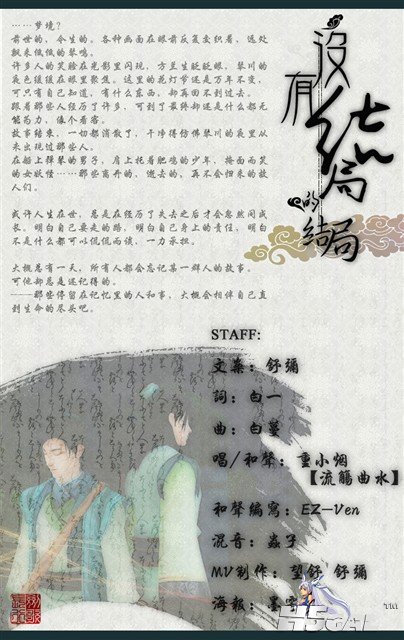 ……梦境？
前世的，今生的。各种画面在眼前反复交织着，远处
飘来低低的琴鸣。
许多人的笑脸在光影里闪现，方兰生眨眨眼，琴川的
夜色缓缓在眼里聚焦。这里的花灯节还是万年不变，
可只有自己知道，有什么东西，却再回不到过去。
跟着那些人经历了许多，可到了最终却还是什么都无
能为力，像个看客。
故事结束，一切都消散了，干净得仿佛琴川的夜里从
来出现过那些人。
在船上弹琴的男子，肩上托着肥鸡的少年，掩面而笑
的女妖怪……那些离开的，逝去的，再不会归来的故
人们。
或许人生在世，总是在经历了失去之后才会忽然间成
长。明白自己要走的路，明白自己身上的责任，明白
不是什么都可以侃侃而谈，一力承担。
大概总有一天，所有人都会忘记某一群人的故事。
可他却总是还记得的。
——那些停留在记忆里的人和事，大概会相伴自己直
到生命的尽头吧。
没有结局
的结局
STAFF:
文案：舒彌
詞：白一
曲：白蔓
唱/和聲：重小烟
【流觴曲水】
和聲編寫：EZ—Ven
混音：蟲子
MV制作：望舒 舒彌
海報：墨